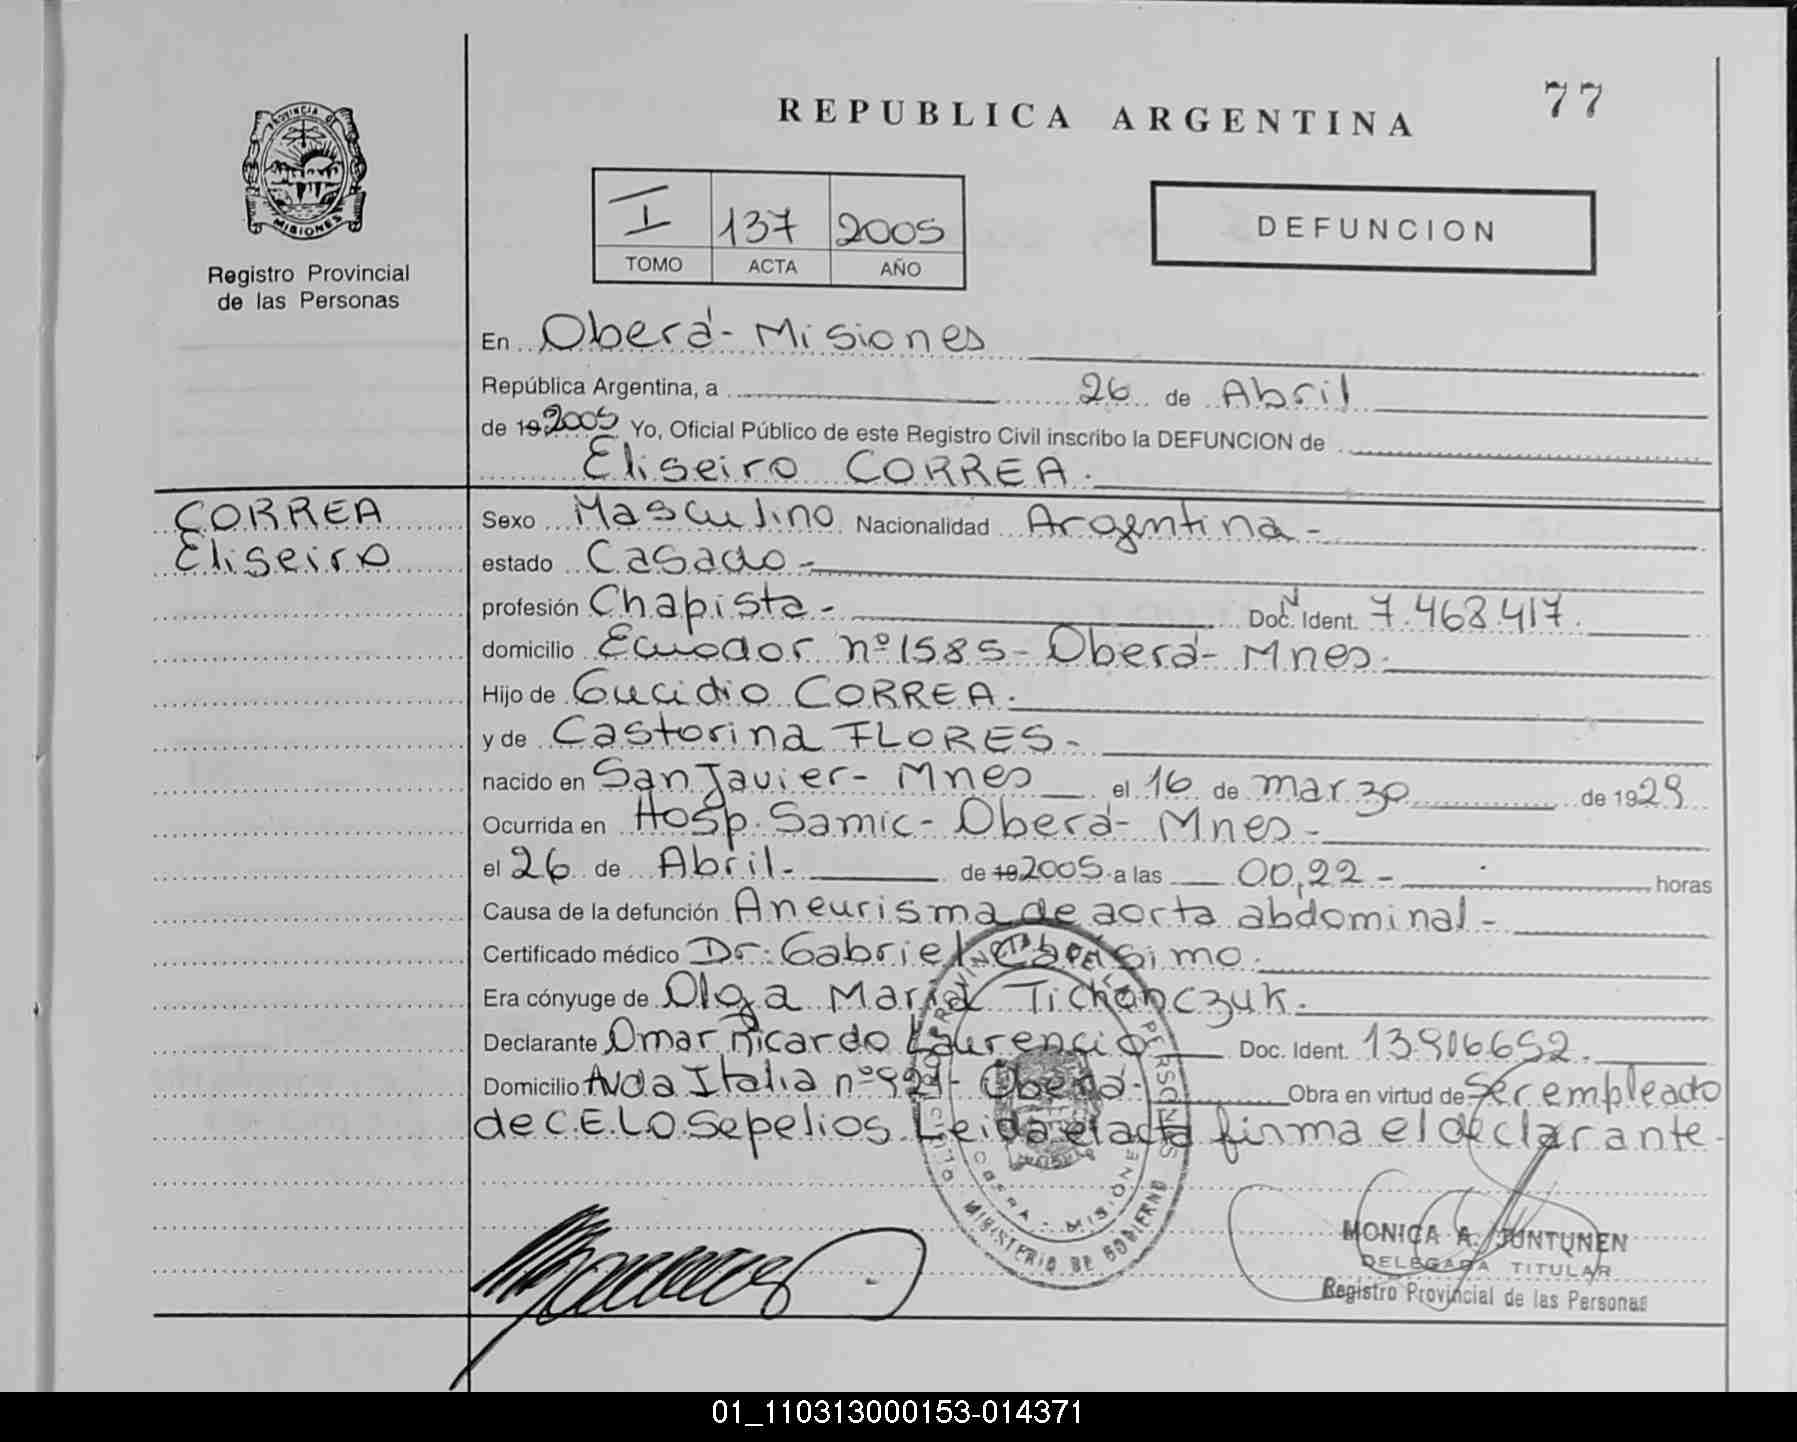 77
REPUBLICA ARGENTINA
PROVINCIA DE
MISIONES
Registro Provincial
de las Personas
I 137 2005
TOMO ACTA AÑO
DEFUNCION
En Oberá- Misiones
República Argentina, a 26 de Abril
de 19 2005 Yo, Oficial Público de este Registro Civil inscribo la DEFUNCION de
Eliseiro CORREA.
CORREA
Eliseiro
Sexo Masculino Nacionalidad Argentina-
estado Casado-
profesión Chapista- Doc. Ident. 7.468.417.
domicilio Ecuador nº 1585- Oberá- Mnes.
Hijo de Gucidio CORREA.
y de Castorina FLORES-
nacido en San Javier- Mnes el 16 de marzo de 1929
Ocurrida en Hosp. Samic- Oberá- Mnes-
el 26 de Abril- de 19 2005 a las 00,22- horas
Causa de la defunción Aneurisma de aorta abdominal-
Certificado médico Dr: Gabriel
Era cónyuge de Olga Maria Tichanczuk.
Declarante Omar Ricardo Laurencio Doc. Ident. 13.906652.
Domicilio Avda Italia nº 929- Oberá- Obra en virtud de Ser empleado
de C.E.L.O Sepelios. Leida el acta firma el declarante-
MINISTERIO DE GOBIERNO
OBERA - MISIONES
MONICA A. JUNTUNEN
DELEGADA TITULAR
Registro Provincial de las Personas
01_110313000153-014371